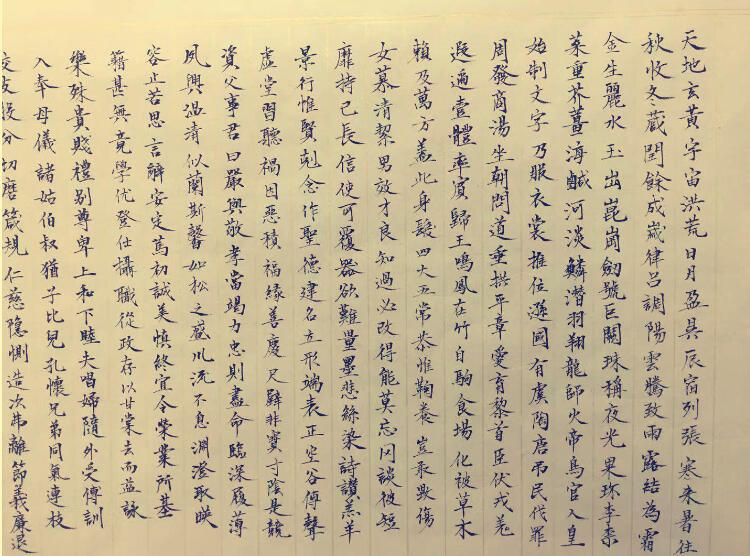 天地玄黃宇宙洪荒日月盈昃辰宿列張寒來暑往
秋收冬藏閏餘成歲律呂調陽雲騰致雨露結為霜
金生麗水玉出崑崗劒號巨闕珠稱夜光果珍李柰
菜重芥薑海鹹河淡鱗潛羽翔龍師火帝鳥官人皇
始制文字乃服衣裳推位遜國有虞陶唐吊民伐罪
周發商湯坐朝問道垂拱平章愛育黎首臣伏戎羌
遐邇壹體率賓歸王鳴鳳在竹白駒食場化被草木
賴及萬方蓋此身髮四大五常恭惟鞠養豈敢毀傷
女慕清絜男效才良知過必改得能莫忘罔談彼短
靡恃己長信使可覆器欲難量墨悲絲染詩讚羔羊
景行惟賢剋念作聖德建名立形端表正空谷傳聲
虛堂習聽禍因惡積福緣善慶尺璧非寶寸陰是競
資父事君曰嚴與敬孝當竭力忠則盡命臨深履薄
夙興溫清似蘭斯馨如松之盛川流不息淵澄取映
容止若思言辭安定篤初誠美慎終宜令榮業所基
籍甚無竟學优登仕攝職從政存以甘棠去而益詠
樂殊貴賤禮別尊卑上和下睦夫唱婦隨外受傅訓
入奉母儀諸姑伯叔猶子比兒孔懷兄弟同氣連枝
交友投分切磨箴規仁慈隱惻造次弗離節義廉退